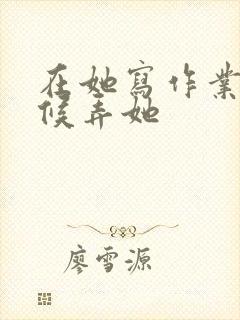 在她寫作業
候弄她
廖雪源